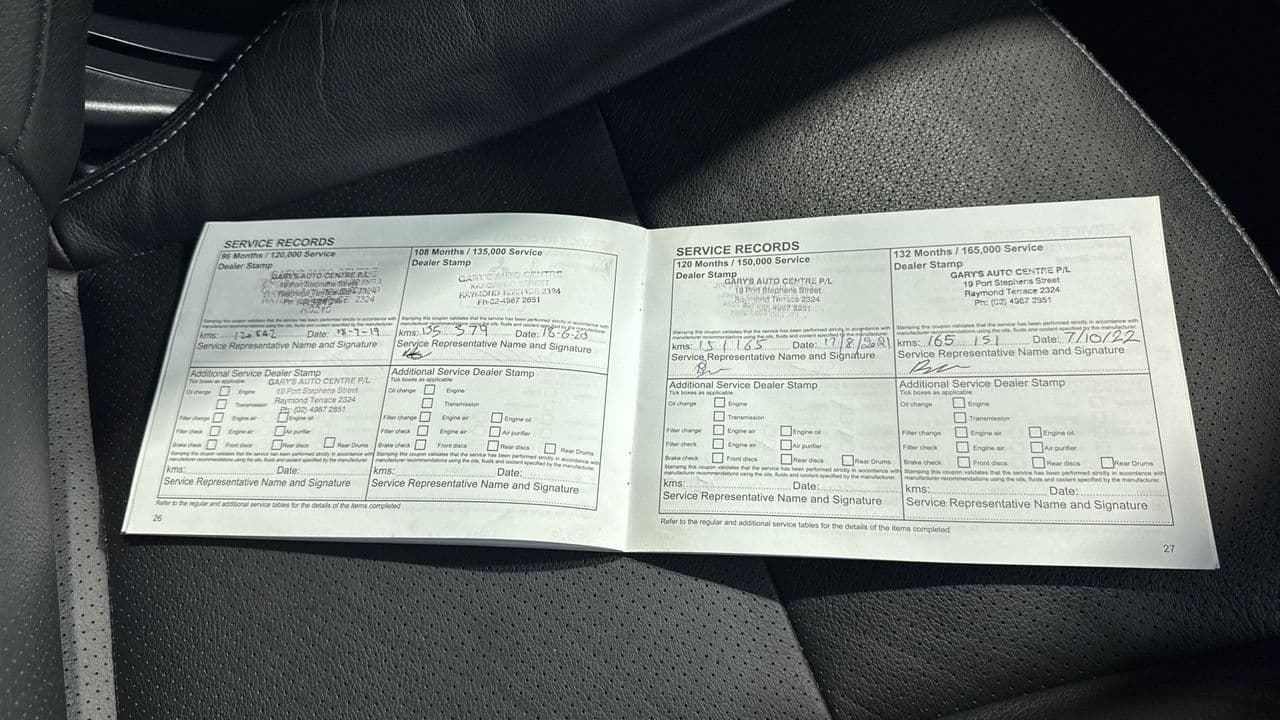 SERVICE RECORDS
96 Months / 120,000 Service
Dealer Stamp
GARY'S AUTO CENTRE P/L
19 Port Stephens Street
Raymond Terrace 2324
Stamping this coupon validates that the service has been performed strictly in accordance with
manufacturer recommendations using the oils, fluids and coolant specified by the manufacturer.
kms: 120 862 Date: 18-7-19
Service Representative Name and Signature
Additional Service Dealer Stamp
Tick boxes as applicable
GARY'S AUTO CENTRE P/L
19 Port Stephens Street
Raymond Terrace 2324
Ph: (02) 4987 2851
Oil change Engine
Transmission
Filter change Engine air Engine oil
Filter check Engine air Air purifier
Brake check Front discs Rear discs Rear Drums
Stamping this coupon validates that the service has been performed strictly in accordance with
manufacturer recommendations using the oils, fluids and coolant specified by the manufacturer.
kms: Date:
Service Representative Name and Signature
108 Months / 135,000 Service
Dealer Stamp
GARY'S AUTO CENTRE
RAYMOND TERRACE 2324
PH 02-4987 2851
kms: 135 379 Date: 18-6-20
Service Representative Name and Signature
Additional Service Dealer Stamp
Tick boxes as applicable
Oil change Engine
Transmission
Filter change Engine air Engine oil
Filter check Engine air Air purifier
Brake check Front discs Rear discs Rear Drums
Stamping this coupon validates that the service has been performed strictly in accordance with
manufacturer recommendations using the oils, fluids and coolant specified by the manufacturer.
kms: Date:
Service Representative Name and Signature
Refer to the regular and additional service tables for the details of the items completed
26
SERVICE RECORDS
120 Months / 150,000 Service
Dealer Stamp
GARY'S AUTO CENTRE P/L
19 Port Stephens Street
Raymond Terrace 2324
4987 2851
Stamping this coupon validates that the service has been performed strictly in accordance with
manufacturer recommendations using the oils, fluids and coolant specified by the manufacturer.
kms: 151 165 Date: 17/8/2021
Service Representative Name and Signature
Additional Service Dealer Stamp
Tick boxes as applicable
Oil change Engine
Transmission
Filter change Engine air Engine oil
Filter check Engine air Air purifier
Brake check Front discs Rear discs Rear Drums
Stamping this coupon validates that the service has been performed strictly in accordance with
manufacturer recommendations using the oils, fluids and coolant specified by the manufacturer.
kms: Date:
Service Representative Name and Signature
132 Months / 165,000 Service
Dealer Stamp
GARY'S AUTO CENTRE P/L
19 Port Stephens Street
Raymond Terrace 2324
Ph: (02) 4987 2851
Stamping this coupon validates that the service has been performed strictly in accordance with
manufacturer recommendations using the oils, fluids and coolant specified by the manufacturer.
kms: 165 151 Date: 7/10/22
Service Representative Name and Signature
Additional Service Dealer Stamp
Tick boxes as applicable
Oil change Engine
Transmission
Filter change Engine air Engine oil
Filter check Engine air Air purifier
Brake check Front discs Rear discs Rear Drums
Stamping this coupon validates that the service has been performed strictly in accordance with
manufacturer recommendations using the oils, fluids and coolant specified by the manufacturer.
kms: Date:
Service Representative Name and Signature
Refer to the regular and additional service tables for the details of the items completed
27